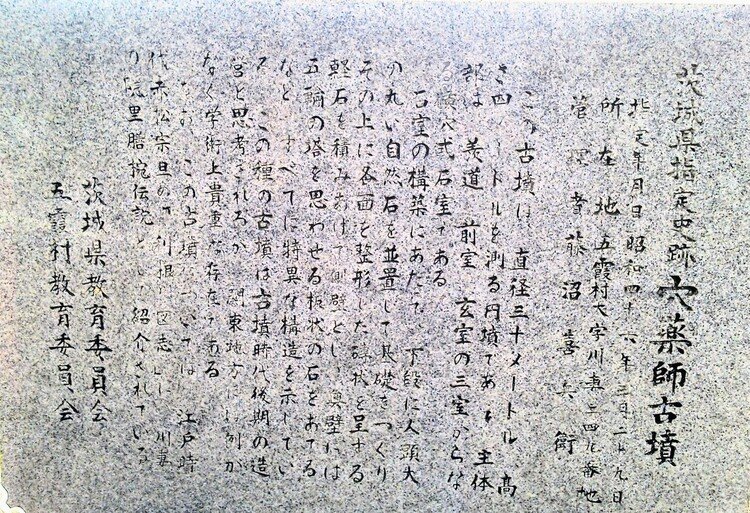 茨城県指定史跡 穴薬師古墳
指定年月日 昭和四十六年三月二十九日
所在地 五霞村大字川妻三四九番地
管理者 藤沼喜兵衛
この古墳は 直径三十メートル 高
さ四 ートルを測る円墳であり 主体
部は 羨道 前室 玄室の三室からな
る横穴式石室である
石室の構築にあたって 下段に人頭大
の丸い自然石を並置して基礎をつくり
その上に各面を整形した 状を呈する
軽石を積みあげて側壁とし 奥壁には
五輪の塔を思わせる板状の石をあてる
など すべてに特異な構造を示してい
る この種の古墳は古墳時代後期の造
営と思考されるが 関東地方に例が
なく学術上貴重な存在である
なお この古墳については 江戸時
代 赤松宗旦の 利根川図志 に 川妻
の隠里膳椀伝説 として紹介されている
茨城県教育委員会
五霞村教育委員会